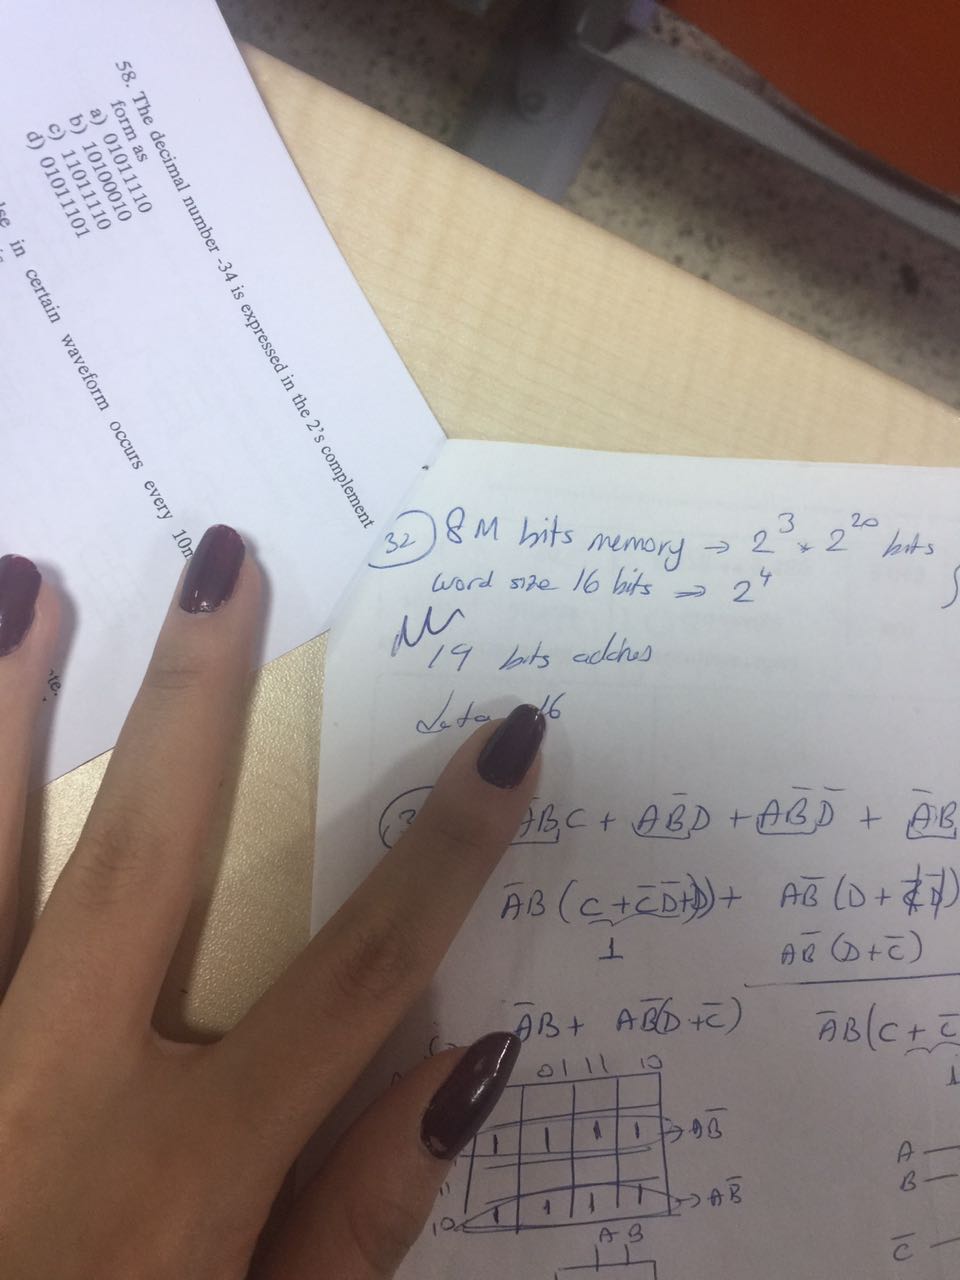 58. The decimal number -34 is expressed in the 2's complement
form as
a) 01011110
b) 10100010
c) 11011110
d) 01011101
in certain waveform occurs every 10
32 8 M bits memory → 2³ * 2²⁰ bits
word size 16 bits ⇒ 2⁴
19 bits addres
data 16
B̅C + AB̅D + AB̅D̅ + A̅B
A̅B (C + C̅D̅+D) + AB̅ (D + C̅D̅)
1
AB̅ (D+C̅)
A̅B + AB̅(D+C̅)
A̅B(C+C̅
1
01 11 10
1 1 1 1 → AB̅
11
10 1 1 1 1 → AB̅
A B
A
B
C̅